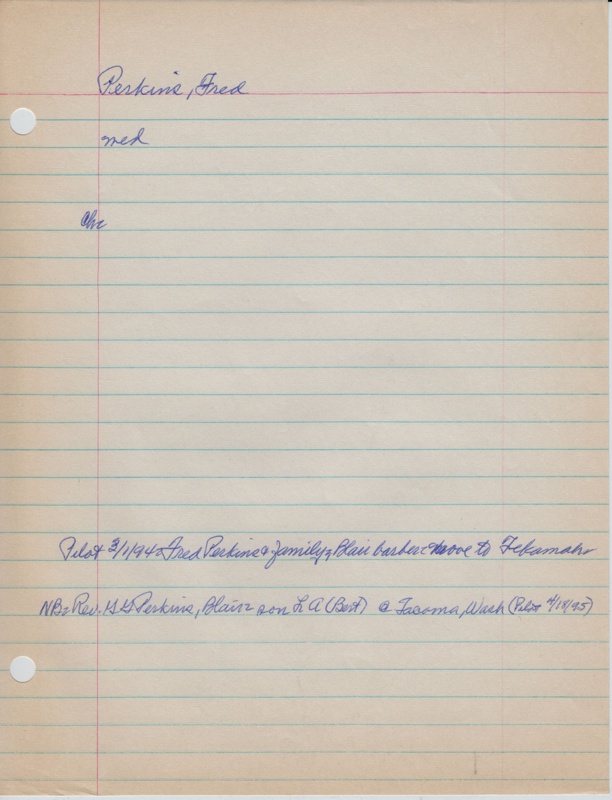 Perkins, Fred
med
Chr
Pilot 3/1/94 Fred Perkins & family, Blair barber move to Tekamah
NB: Rev. Perkins, Blair son L A (Bert) @ Tacoma, Wash (Pilot 4/18/95)